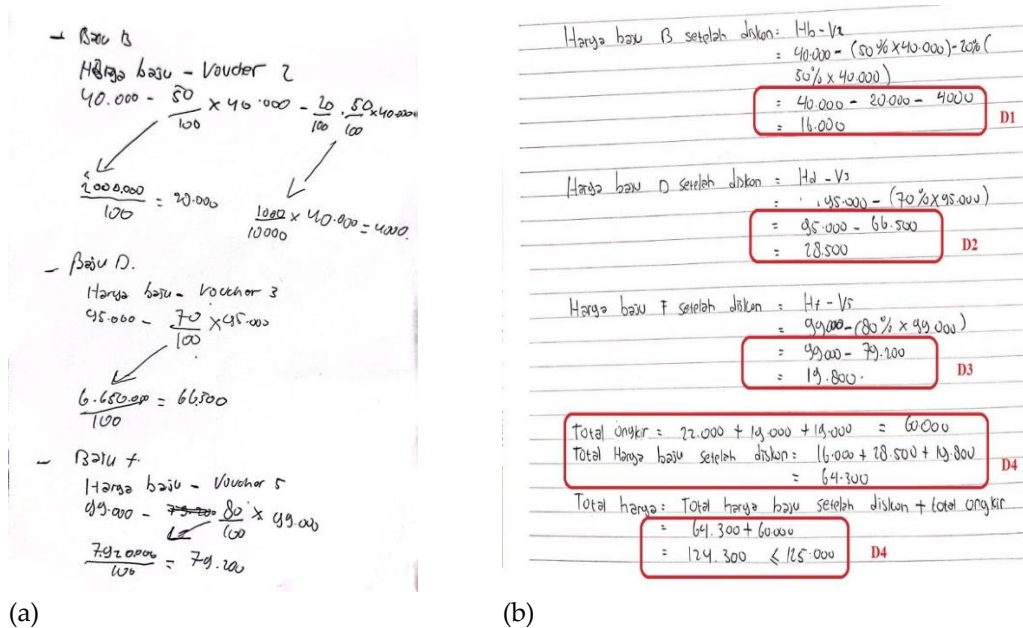 - Baju B
Harga baju - Voucher 2
40.000 - 50/100 × 40.000 - 20/100 . 50/100 × 40.000
2000.000/100 = 20.000
1000/10000 × 40.000 = 4000.
- Baju D.
Harga baju - Vouchor 3
95.000 - 70/100 × 95.000
6.650.000/100 = 66.500
- Baju F.
Harga baju - Vouchor 5
99.000 - 80/100 × 99.000
7.920.000/100 = 79.200
(a)
Harga baju B setelah diskon = Hb - V2
= 40.000 - (50% × 40.000) - 20% (
50% × 40.000)
= 40.000 - 20.000 - 4000
= 16.000
D1
Harga baju D setelah diskon = Hd - V3
= 95.000 - (70% × 95.000)
= 95.000 - 66.500
= 28.500
D2
Harga baju F setelah diskon = Hf - V5
= 99.000 - (80% × 99.000)
= 99.000 - 79.200
= 19.800.
D3
Total ongkir = 22.000 + 19.000 + 19.000 = 60.000
Total Harga baju setelah diskon = 16.000 + 28.500 + 19.800
= 64.300
D4
Total harga = Total harga baju setelah diskon + total ongkir
= 64.300 + 60.000
= 124.300 ≤ 125.000
D4
(b)